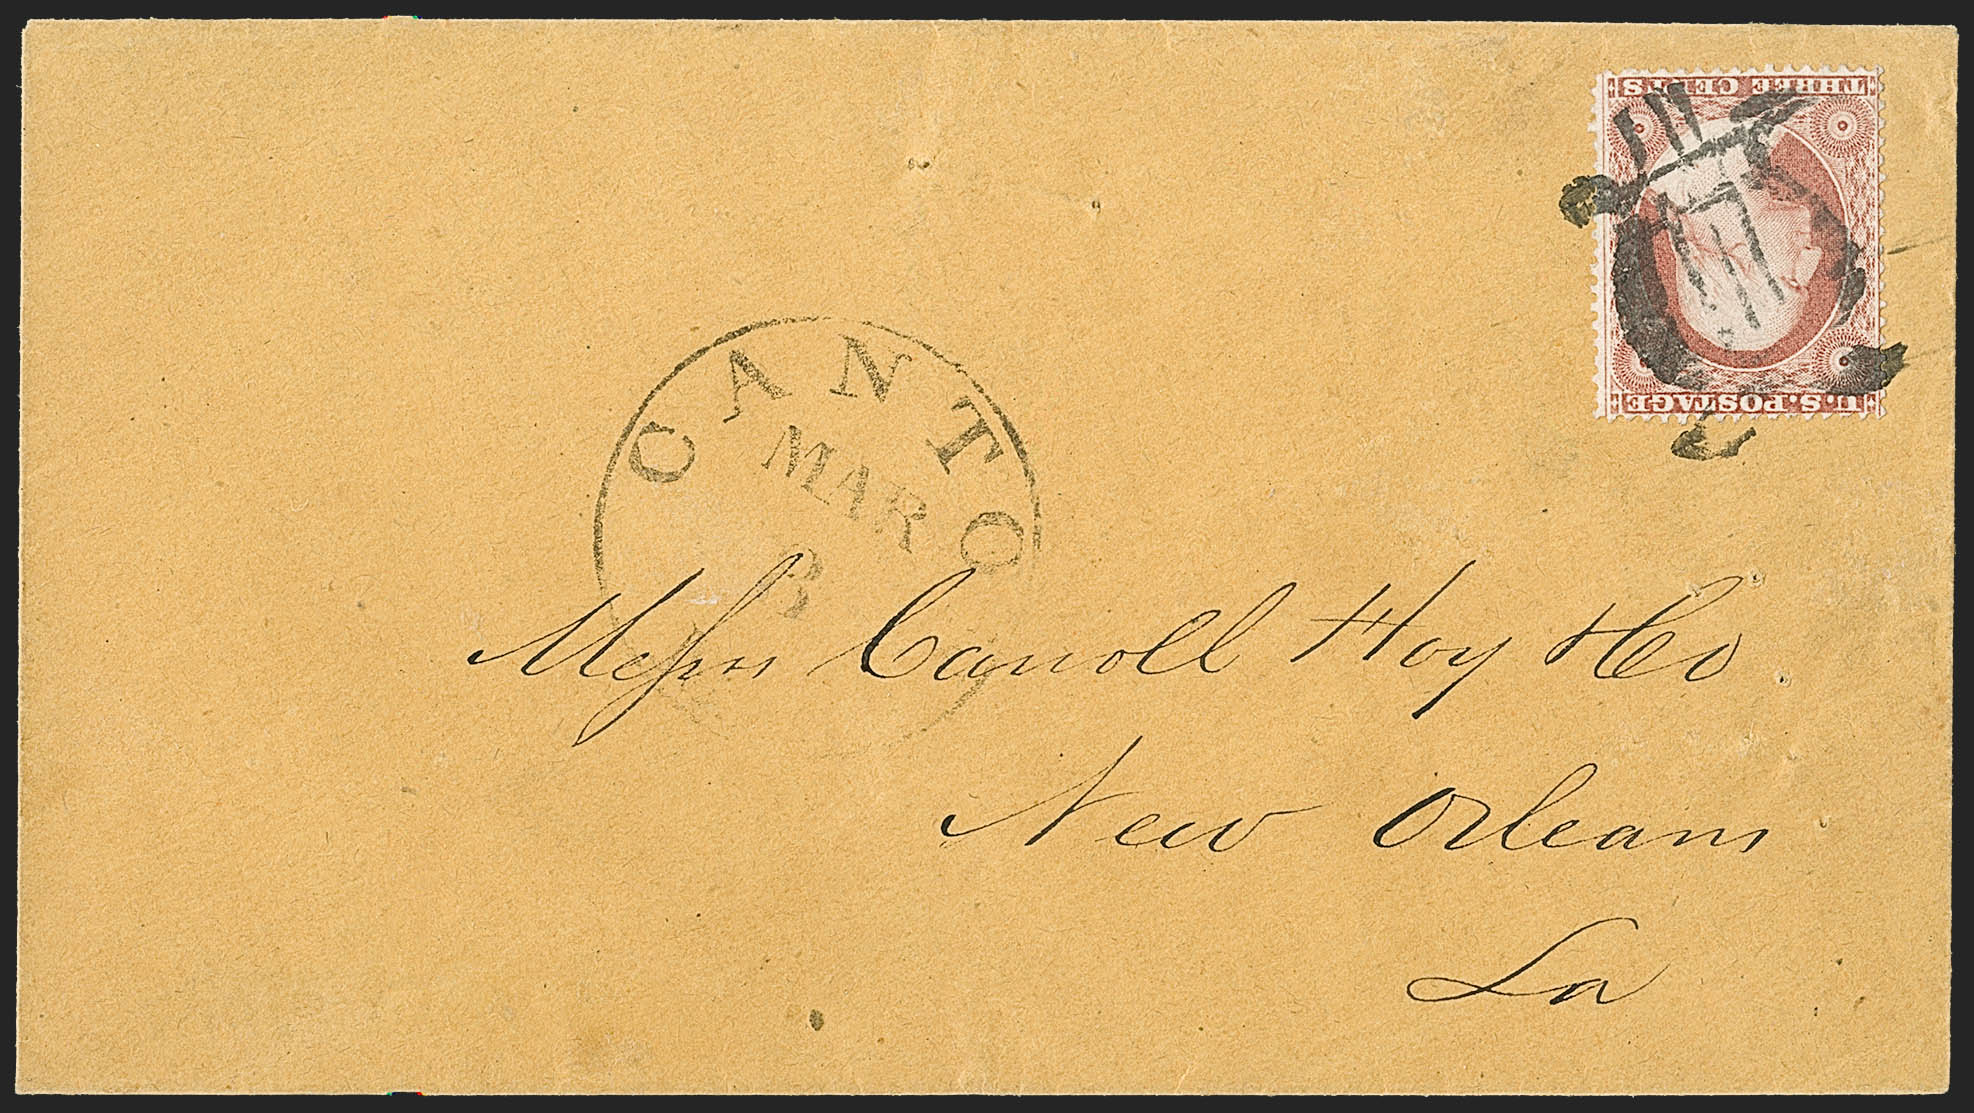 THREE CENTS
U.S. POSTAGE
CANTO
MAR
3
Messrs Carroll Hoy & Co.
New Orleans
La